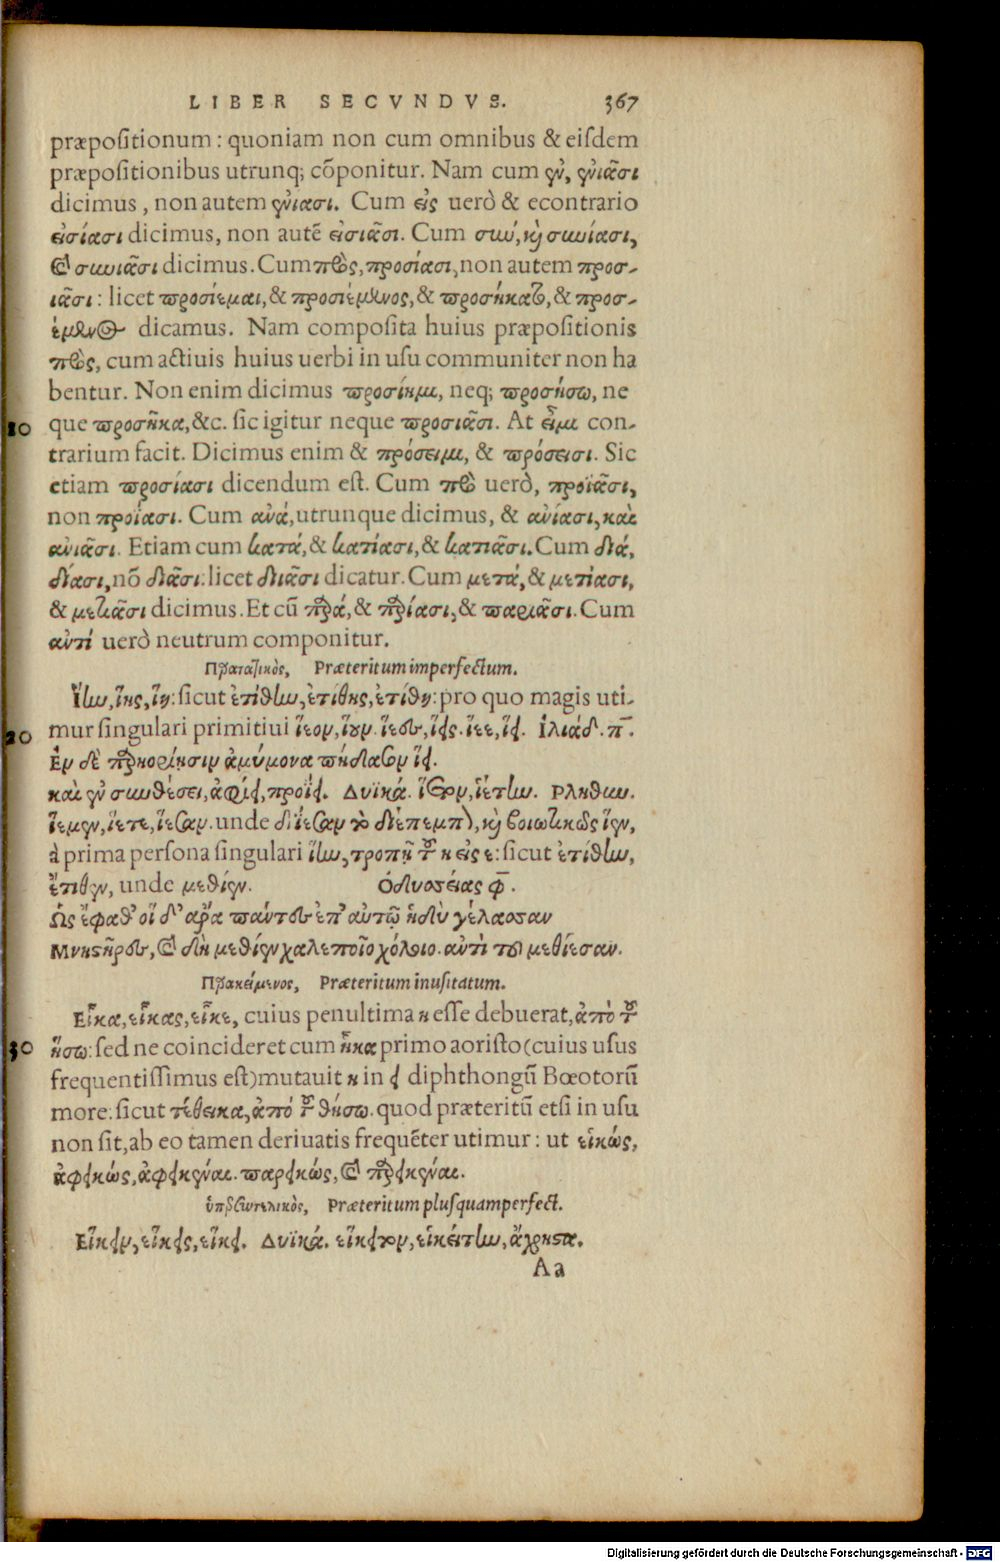 LIBER SECVNDVS. 367
præpositionum : quoniam non cum omnibus & eisdem
præpositionibus utrunq; cõponitur. Nam cum ἐν, ἐνιᾶσι
dicimus, non autem ἐνίασι. Cum εἰς uerò & econtrario
εἰσίασι dicimus, non autẽ εἰσιᾶσι. Cum σιωύ, καὶ σιωίασι,
& σιωιᾶσι dicimus. Cum πρὸς, προσίασι, non autem προσ-
ιᾶσι : licet προσίεμαι, & προσιέμενος, & προσήκατο, & προσ-
έμενος dicamus. Nam composita huius præpositionis
πρὸς, cum actiuis huius uerbi in usu communiter non ha
bentur. Non enim dicimus προσίημι, neq; προσήσω, ne
10 que προσῆκα, &c. sic igitur neque προσιᾶσι. At εἶμι con-
trarium facit. Dicimus enim & πρόσειμι, & πρόσεισι. Sic
etiam προσίασι dicendum est. Cum πρὸ uerò, προϊᾶσι,
non προίασι. Cum ἀνά, utrunque dicimus, & ἀνίασι, καὶ
ἀνιᾶσι. Etiam cum κατά, & κατίασι, & κατιᾶσι. Cum διά,
δίασι, nõ διᾶσι: licet διιᾶσι dicatur. Cum μετά, & μετίασι,
& μετιᾶσι dicimus. Et cũ παρά, & παρίασι, & παριᾶσι. Cum
ἀντί uerò neutrum componitur.
Παρατατικὸς, Præteritum imperfectum.
Ἵην, ἵης, ἵη: sicut ἐτίθην, ἐτίθης, ἐτίθη: pro quo magis uti-
20 mur singulari primitiui ἵεον, ἵουν. ἵεες, ἵεις. ἵεε, ἵει. Ἰλιάδ. π̄.
Ἐν δὲ παρηορίῃσιν ἀμύμονα πήδασον ἵει.
καὶ ἐν συνθέσει, ἀφίει, προΐει. Δυϊκά. ἵετον, ἱέτην. Πληθυν.
ἵεμεν, ἵετε, ἵεσαν. unde διΐεσαν διέπεμπον, καὶ βοιωτικῶς ἵεν,
à prima persona singulari ἵην, τροπῇ τοῦ η εἰς ε: sicut ἐτίθην,
ἔτιθεν, unde μεθίεν. Ὀδυσσείας φ̄.
Ὣς ἔφαθ' οἱ δ' ἄρα πάντες ἐπ' αὐτῷ ἡδὺ γέλασσαν
Μνηστῆρες, καὶ δὴ μεθίεν χαλεποῖο χόλοιο. ἀντὶ τοῦ μεθίεσαν.
Παρακείμενος, Præteritum inusitatum.
Εἷκα, εἷκας, εἷκε, cuius penultima η esse debuerat, ἀπὸ τοῦ
30 ἥσω: sed ne coincideret cum ἧκα primo aoristo (cuius usus
frequentissimus est) mutauit η in ει diphthongũ Bœotorũ
more: sicut τέθεικα, ἀπὸ τοῦ θήσω. quod præteritũ etsi in usu
non sit, ab eo tamen deriuatis frequẽter utimur : ut εἱκώς,
ἀφεικώς, ἀφεικέναι. παρεικώς, & παρεικέναι.
ὑπερσυντελικὸς, Præteritum plusquamperfect.
Εἵκειν, εἵκεις, εἵκει. Δυϊκά. εἵκειτον, εἱκείτην, ἄχρηστα.
Aa
Digitalisierung gefördert durch die Deutsche Forschungsgemeinschaft - DFG